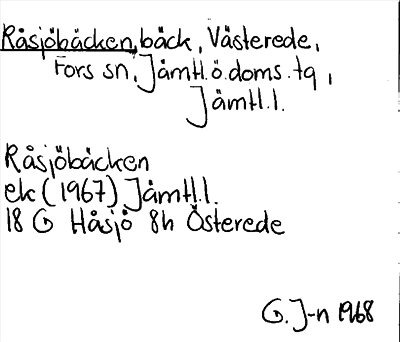 Råsjöbäcken, bäck, Västerede,
Fors sn, Jämtl.ö.doms.tg,
Jämtl.l.
Råsjöbäcken
ek (1967) Jämtl.l.
18 G Håsjö 8h Österede
G. J-n 1968